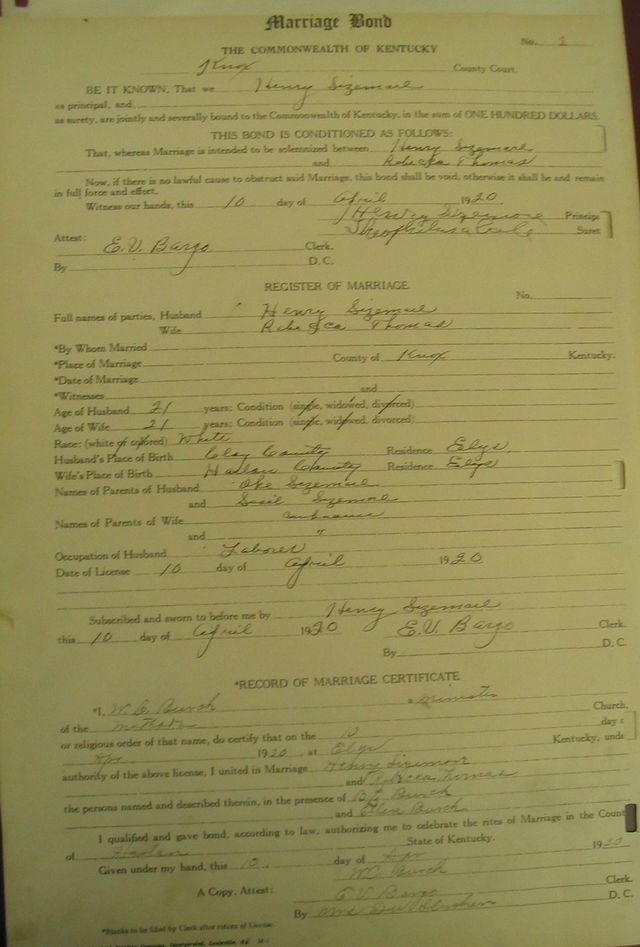 Marriage Bond
No. 1
THE COMMONWEALTH OF KENTUCKY
Knox County Court.
BE IT KNOWN, That we Henry Sizemail
as principal, and
as surety, are jointly and severally bound to the Commonwealth of Kentucky, in the sum of ONE HUNDRED DOLLARS.
THIS BOND IS CONDITIONED AS FOLLOWS:
That, whereas Marriage is intended to be solemnized between Henry Sizemail
and Rebecka Thomas
Now, if there is no lawful cause to obstruct said Marriage, this bond shall be void, otherwise it shall be and remain
in full force and effect.
Witness our hands, this 10 day of April 1920.
Henry Sizemore Princip
Theophilus Suret
Attest: E.V. Bargo Clerk.
By D. C.
REGISTER OF MARRIAGE
No.
Full names of parties, Husband Henry Sizemail
Wife Rebecca Thomas
*By Whom Married
*Place of Marriage County of Knox Kentucky.
*Date of Marriage
*Witnesses and
Age of Husband 21 years; Condition (single, widowed, divorced)
Age of Wife 21 years; Condition (single, widowed, divorced)
Race: (white or colored) White
Husband's Place of Birth Clay County Residence Elys
Wife's Place of Birth Harlan County Residence Elys
Names of Parents of Husband Sizemail
and Susie Sizemail
Names of Parents of Wife
and "
Occupation of Husband Laborer
Date of License 10 day of April 1920
Subscribed and sworn to before me by Henry Sizemail
this 10 day of April 1920 E.V. Bargo Clerk.
By D. C.
*RECORD OF MARRIAGE CERTIFICATE
*I, W.C. Burch a Minister
of the Church,
or religious order of that name, do certify that on the 10 day
Apr 1920, at Elys Kentucky, unde
authority of the above license, I united in Marriage Henry Sizemore
and Rebecca Thomas
the persons named and described therein, in the presence of Burch
and Ellen Burch
I qualified and gave bond, according to law, authorizing me to celebrate the rites of Marriage in the Count
of Harlan State of Kentucky.
Given under my hand, this 10 day of Apr 1920
W.C. Burch
A Copy, Attest: E V Bargo Clerk.
By Mrs D. C.
*Blanks to be filled by Clerk after return of License.